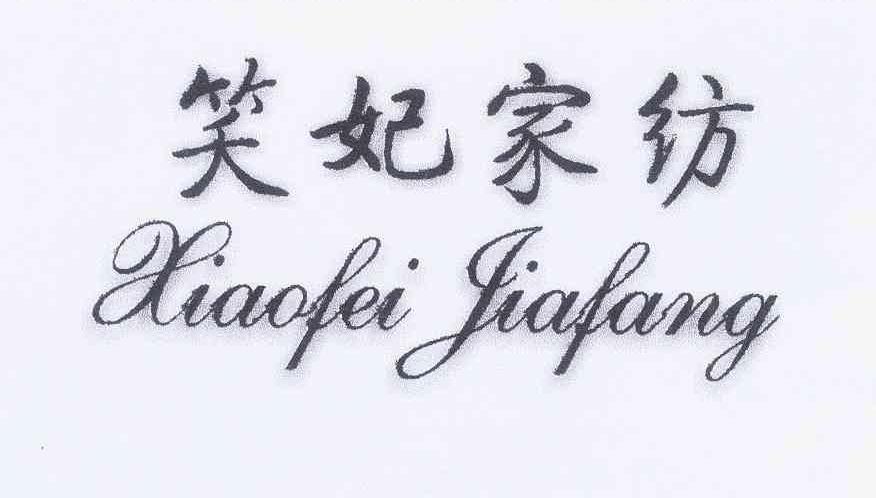 笑妃家纺
Xiaofei Jiafang